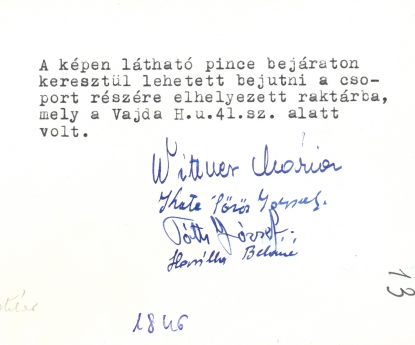 A képen látható pince bejáraton
keresztül lehetett bejutni a cso-
port részére elhelyezett raktárba,
mely a Vajda H.u.41.sz. alatt
volt.
Wittner Mária
Tóth József
1846
13